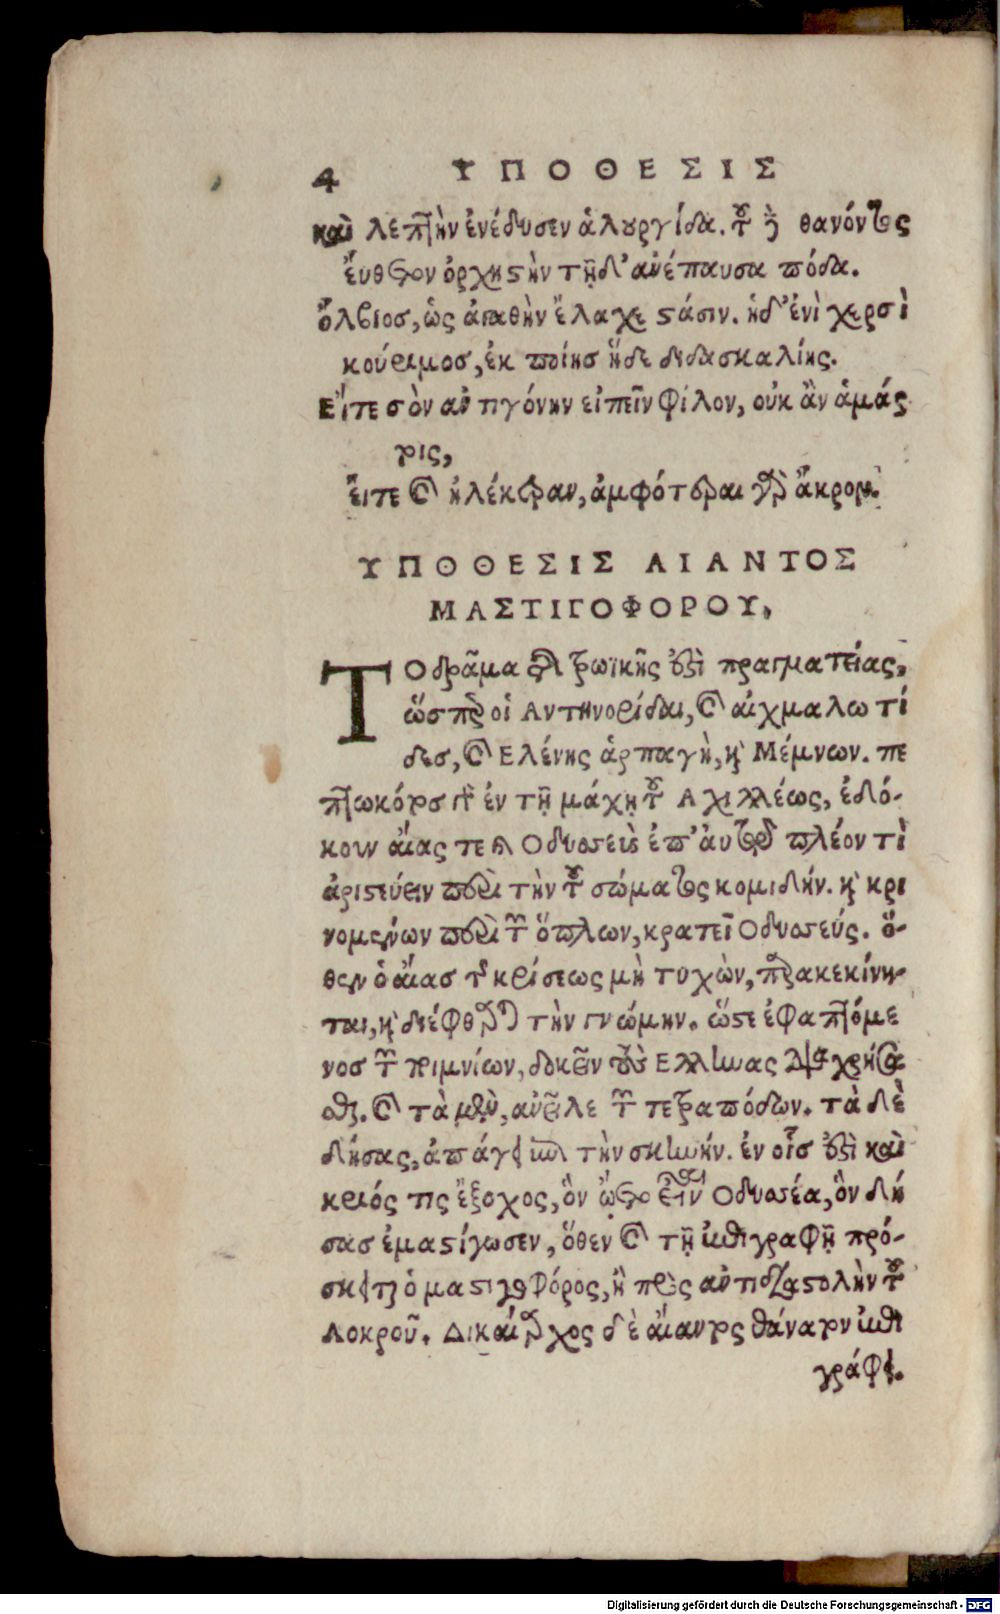 4 ΥΠΟΘΕΣΙΣ
καὶ λεπτὴν ἐνέδυσεν ἁλουργίδα. τοῦ δὲ θανόντος
εὔθετον ὀρχηστὴν τῇδ' ἀνέπαυσα πόδα.
ὄλβιος, ὡς ἀγαθὴν ἔλαχε στάσιν. ἡδ' ἐνὶ χερσὶ
κούριμος, ἐκ ποίης ἥδε διδασκαλίης.
Εἴτε σὸν ἀντιγόνην εἰπεῖν φίλον, οὐκ ἂν ἁμάρ
τοις,
εἴτε καὶ ἠλέκτραν, ἀμφότεραι γὰρ ἄκρον.
ΥΠΟΘΕΣΙΣ ΑΙΑΝΤΟΣ
ΜΑΣΤΙΓΟΦΟΡΟΥ,
ΤΟ δρᾶμα τῆς τρωϊκῆς ἐστὶ πραγματείας,
ὥσπερ οἱ Αντηνορίδαι, καὶ αἰχμαλωτί
δες, καὶ Ελένης ἁρπαγὴ, καὶ Μέμνων. πε
πτωκότος γὰρ ἐν τῇ μάχῃ τοῦ Αχιλλέως, ἐδό-
κουν αἴας τε καὶ Οδυσσεὺς ἐπ' αὐτῷ πλέον τὶ
ἀριστεύειν περὶ τὴν τοῦ σώματος κομιδήν. καὶ κρι
νομένων περὶ τῶν ὅπλων, κρατεῖ Οδυσσεύς. ὅ-
θεν ὁ αἴας τῆς κρίσεως μὴ τυχὼν, παρακεκίνη-
ται, καὶ διέφθαρται τὴν γνώμην. ὥστε ἐφαπτόμε
νος τῶν ποιμνίων, δοκεῖν τοὺς Ελληνας διαχρήσα
σθαι. καὶ τὰ μὲν, ἀνεῖλε τῶν τετραπόδων. τὰ δὲ
δήσας, ἀπάγει ἐπὶ τὴν σκηνήν. ἐν οἷς ἐστὶ καὶ
κριός τις ἔξοχος, ὃν ᾤετο εἶναι Οδυσσέα, ὃν δή
σας ἐμαστίγωσεν, ὅθεν καὶ τῇ ἐπιγραφῇ πρό-
σκειται ὁ μαστιγοφόρος, ἢ πρὸς ἀντιδιαστολὴν τοῦ
Λοκροῦ. Δικαίαρχος δὲ αἴαντος θάνατον ἐπι
γράφει.
Digitalisierung gefördert durch die Deutsche Forschungsgemeinschaft - DFG